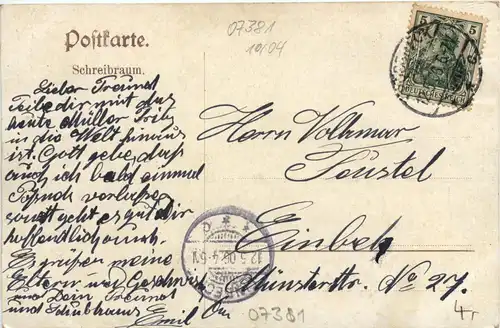 Postkarte.
Schreibraum.
07381
10/04
5 5
Lieber Freund
Teile dir mit das
heute Müller Fritz
in die Welt hinaus
ist. Gott gebe, daß
auch ich bald einmal
verlasse
sonst geht es gut dir
hoffentlich auch.
Es grüßen meine
Eltern und Geschwister
und Dein Freund
und
Emil
Herrn Volkmar
Teustel
Einbek
Münsterstr. No 27.
12.5.06.4-5N
07381
4,-